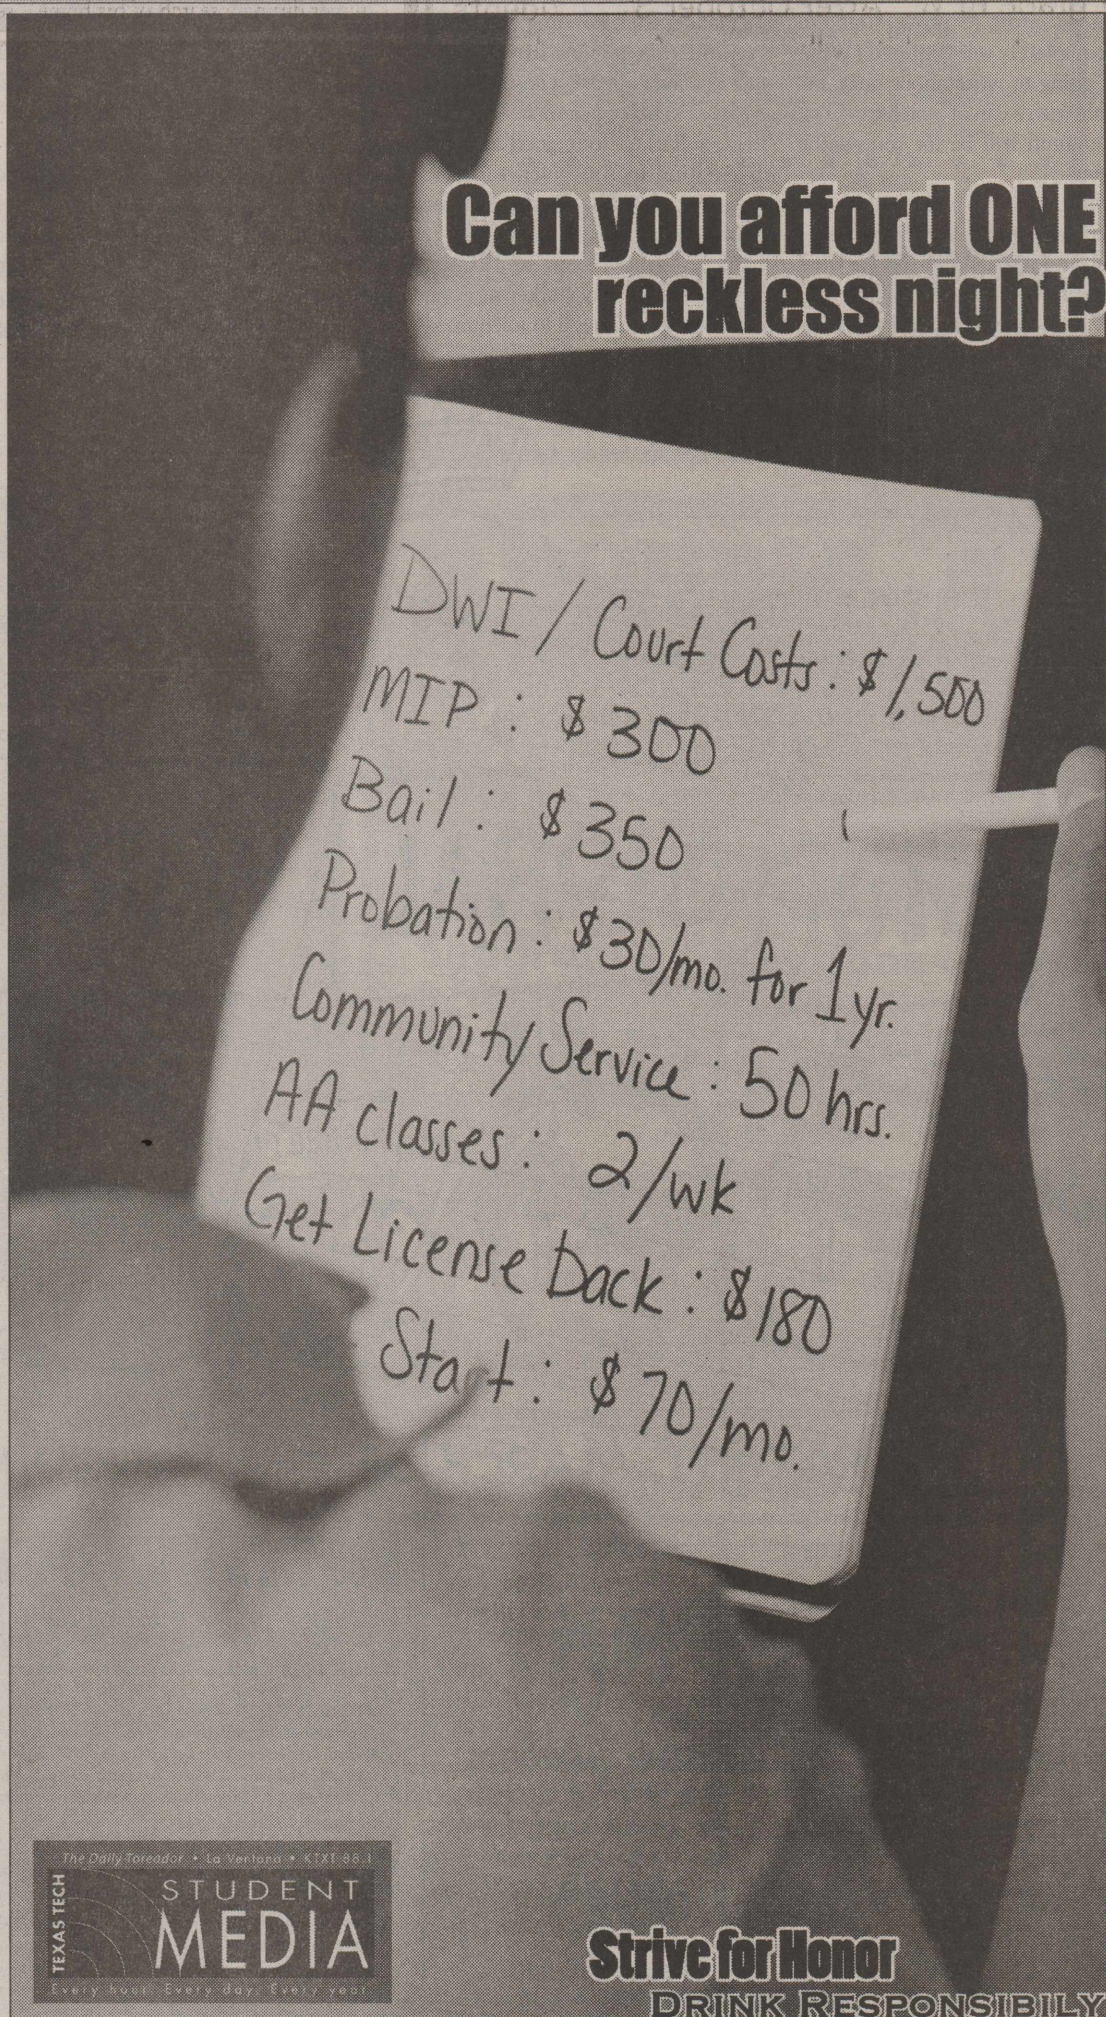 Can you afford ONE
reckless night?
DWI / Court Costs : $1,500
MIP : $300
Bail : $350
Probation : $30/mo. for 1 yr.
Community Service : 50 hrs.
AA classes : 2/wk
Get License back : $180
Start : $70/mo.
The Daily Toreador • La Ventana • KTXT 88.1
TEXAS TECH
STUDENT
MEDIA
Every hour. Every day. Every year
Strive for Honor
DRINK RESPONSIBILY